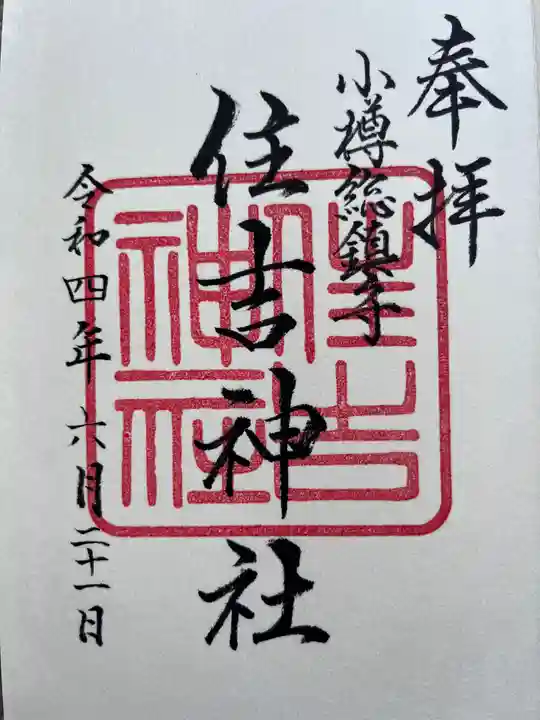 奉拝
小樽総鎮守
住吉神社
令和四年六月二十一日
住吉神社